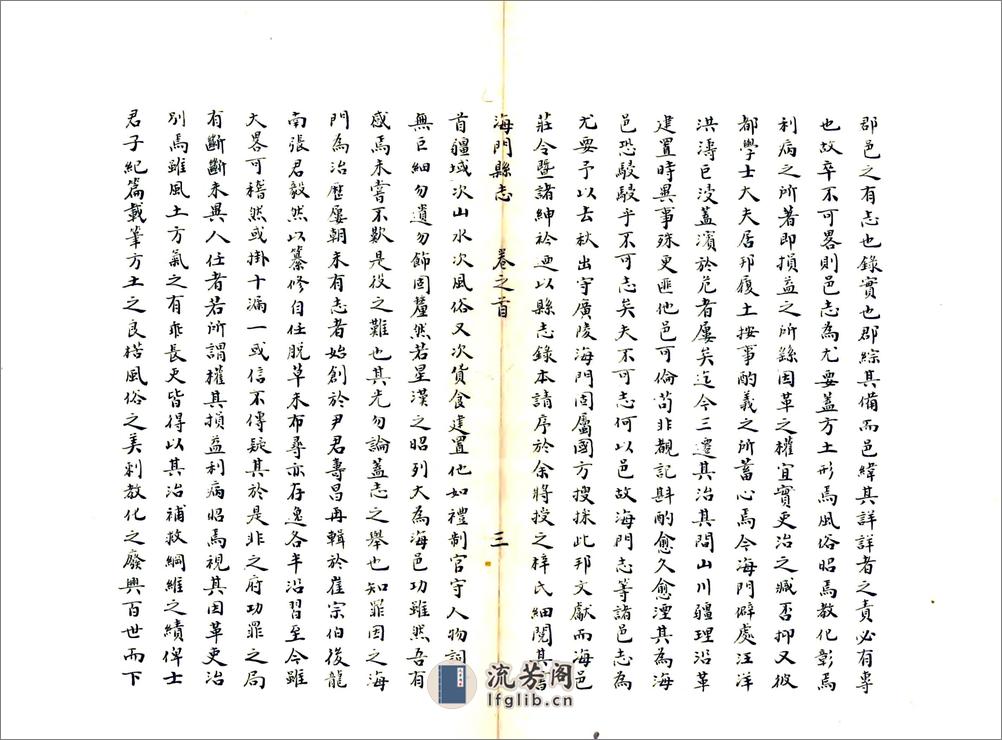 郡邑之有志也錄實也郡綜其備而邑緯其詳詳者之責必有專
也故卒不可畧則邑志為尤要蓋方土形焉風俗昭焉教化彰焉
利病之所著即損益之所繇因革之權宜實吏治之臧否抑又彼
都學士大夫居邦履土按事酌義之所蓄心焉今海門僻處汪洋
洪濤巨浸蓋濱於危者屢矣迄今三遷其治其間山川疆理沿革
建置時異事殊更匪他邑可倫苟非覩記斟酌愈久愈湮其為海
邑恐駸駸乎不可志矣夫不可志何以邑故海門志等諸邑志為
尤要予以去秋出守廣陵海門固屬國方搜採此邦文獻而海邑
莊令暨諸紳衿迺以縣志錄本請序於余將授之梓氏細閱其
海門縣志 卷之首 三
首疆域次山水次風俗又次貨食建置他如禮制官守人物詞
無巨細勿遺勿飾固釐然若星漢之昭列大為海邑功雖然吾有
感焉未嘗不歎是役之難也其先勿論蓋志之舉也知罪因之海
門為治歷屢朝未有志者始創於尹君壽昌再輯於崔宗伯後龍
南張君毅然以纂修自任脫草未布尋亦存逸各半沿習至今雖
大畧可稽然或掛十漏一或信不傳疑其於是非之府功罪之局
有斷斷未畀人任者若所謂權其損益利病昭焉視其因革吏治
別焉雖風土方氣之有乖長吏皆得以其治補救綱維之績俾士
君子紀篇載筆方土之良楛風俗之美刺教化之廢興百世而下
流芳阁
lfglib.cn